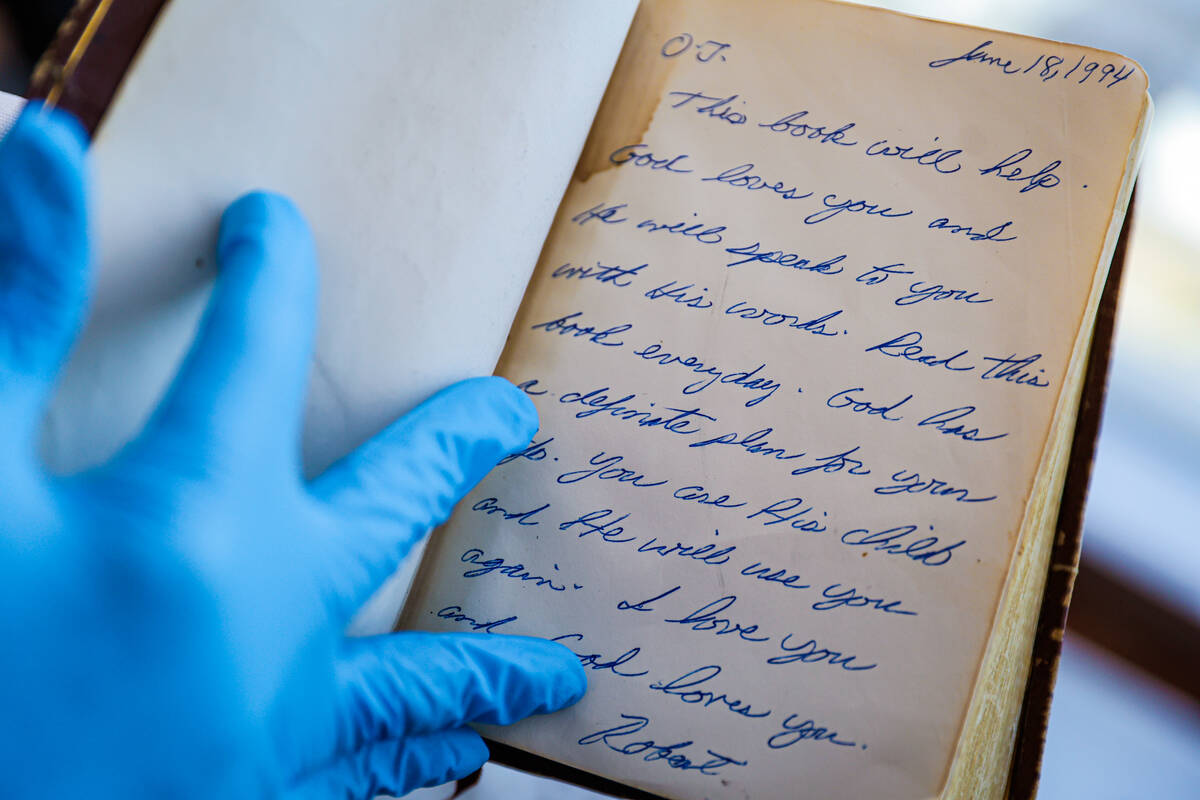 O.J.
June 18, 1994
This book will help.
God loves you and
He will speak to you
with His words. Read this
book everyday. God has
a definite plan for your
You are His child
and He will use you
again. I love you
and God loves you.
Robert